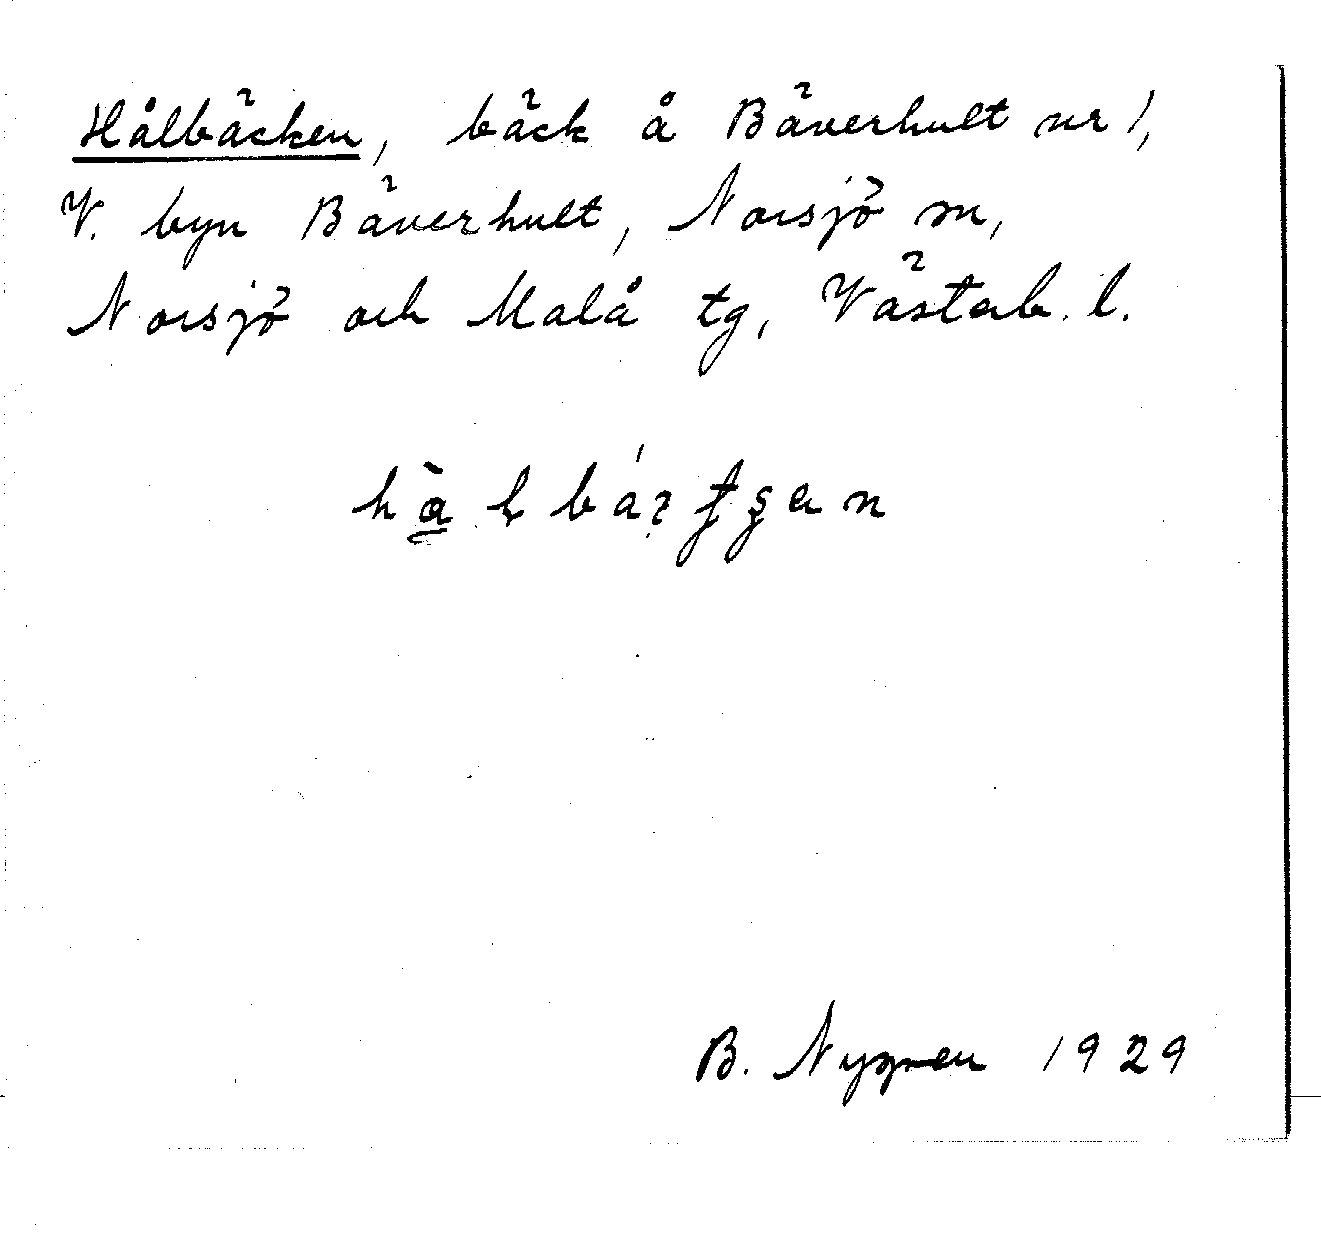 Hålbäcken, bäck å Bäverhult nr 1,
V. byn Bäverhult, Norsjö sn,
Norsjö och Malå tg, Västerb. l.
B. Nygren 1929